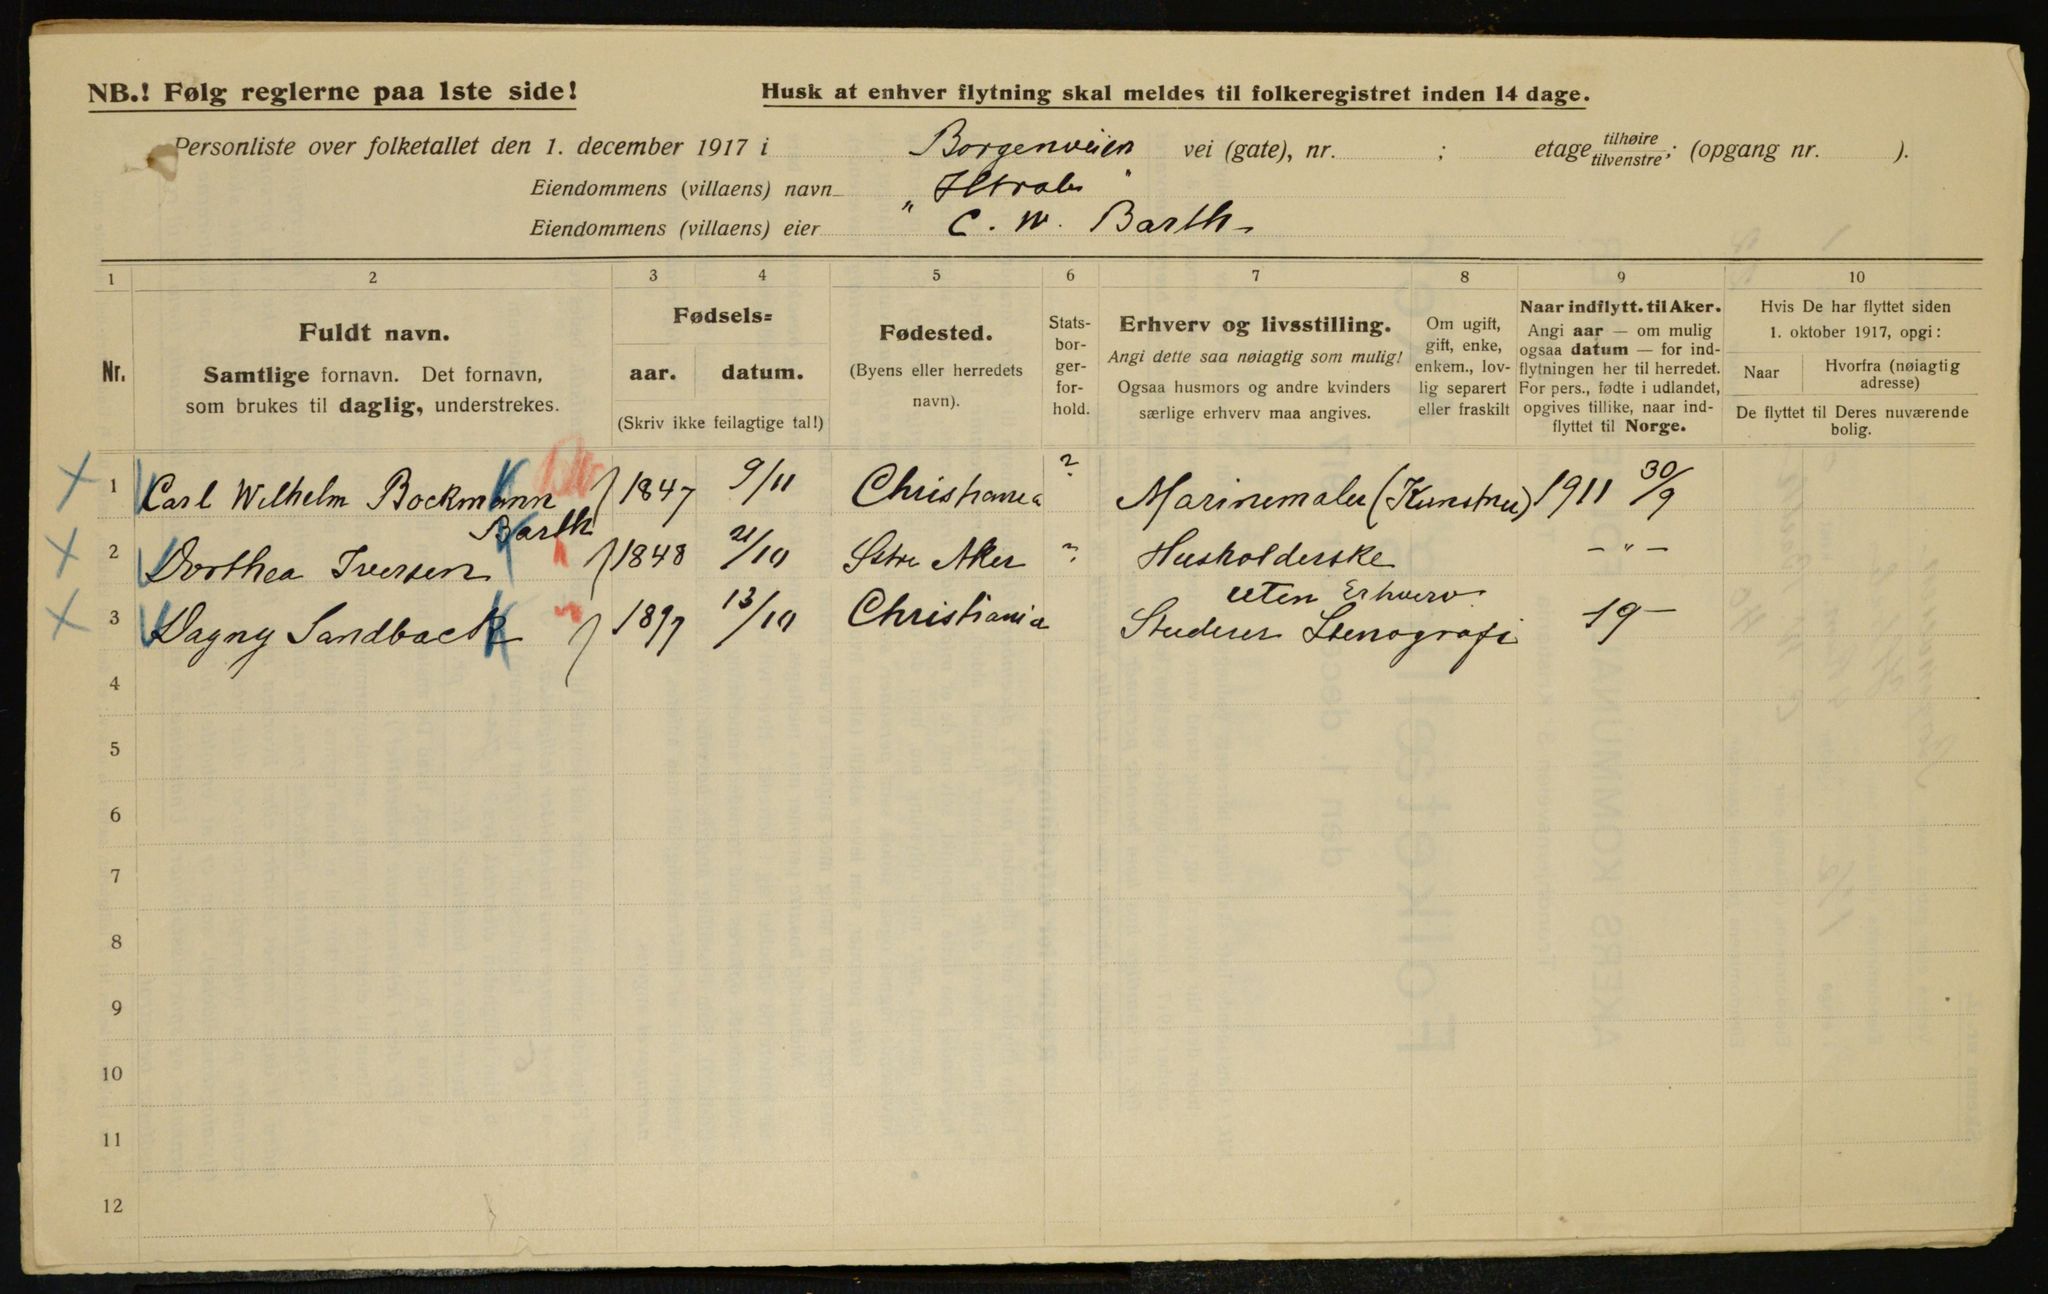 NB.! Følg reglerne paa 1ste side!
Husk at enhver flytning skal meldes til folkeregistret inden 14 dage.
Personliste over folketallet den 1. december 1917 i Borgenveien vei (gate), nr. ; etage tilhøire tilvenstre; (opgang nr. ).
Eiendommens (villaens) navn
Eiendommens (villaens) eier C. W. Barth
1 2 3 4 5 6 7 8 9 10
Nr.
Fuldt navn.
Samtlige fornavn. Det fornavn,
som brukes til daglig, understrekes.
Fødsels=
aar. datum.
(Skriv ikke feilagtige tal!)
Fødested.
(Byens eller herredets
navn).
Stats-
bor-
ger-
for-
hold.
Erhverv og livsstilling.
Angi dette saa nøiagtig som mulig!
Ogsaa husmors og andre kvinders
særlige erhverv maa angives.
Om ugift,
gift, enke,
enkem., lov-
lig separert
eller fraskilt
Naar indflytt. til Aker.
Angi aar — om mulig
ogsaa datum — for ind-
flytningen her til herredet.
For pers., fødte i utlandet,
opgives tillike, naar ind-
flyttet til Norge.
Hvis De har flyttet siden
1. oktober 1917, opgi:
Naar
Hvorfra (nøiagtig
adresse)
De flyttet til Deres nuværende
bolig.
1 Carl Wilhelm Bockmann 1847 9/11 Christiania ? Marinemaler (Kunstner) 1911 30/9
Barth
2 Dorthea Iversen 1848 21/10 Østre Aker ? Husholderske — " —
uten Erhverv
3 Dagny Sandback 1897 13/10 Christiania Studerer Stenografi 19—
4
5
6
7
8
9
10
11
12